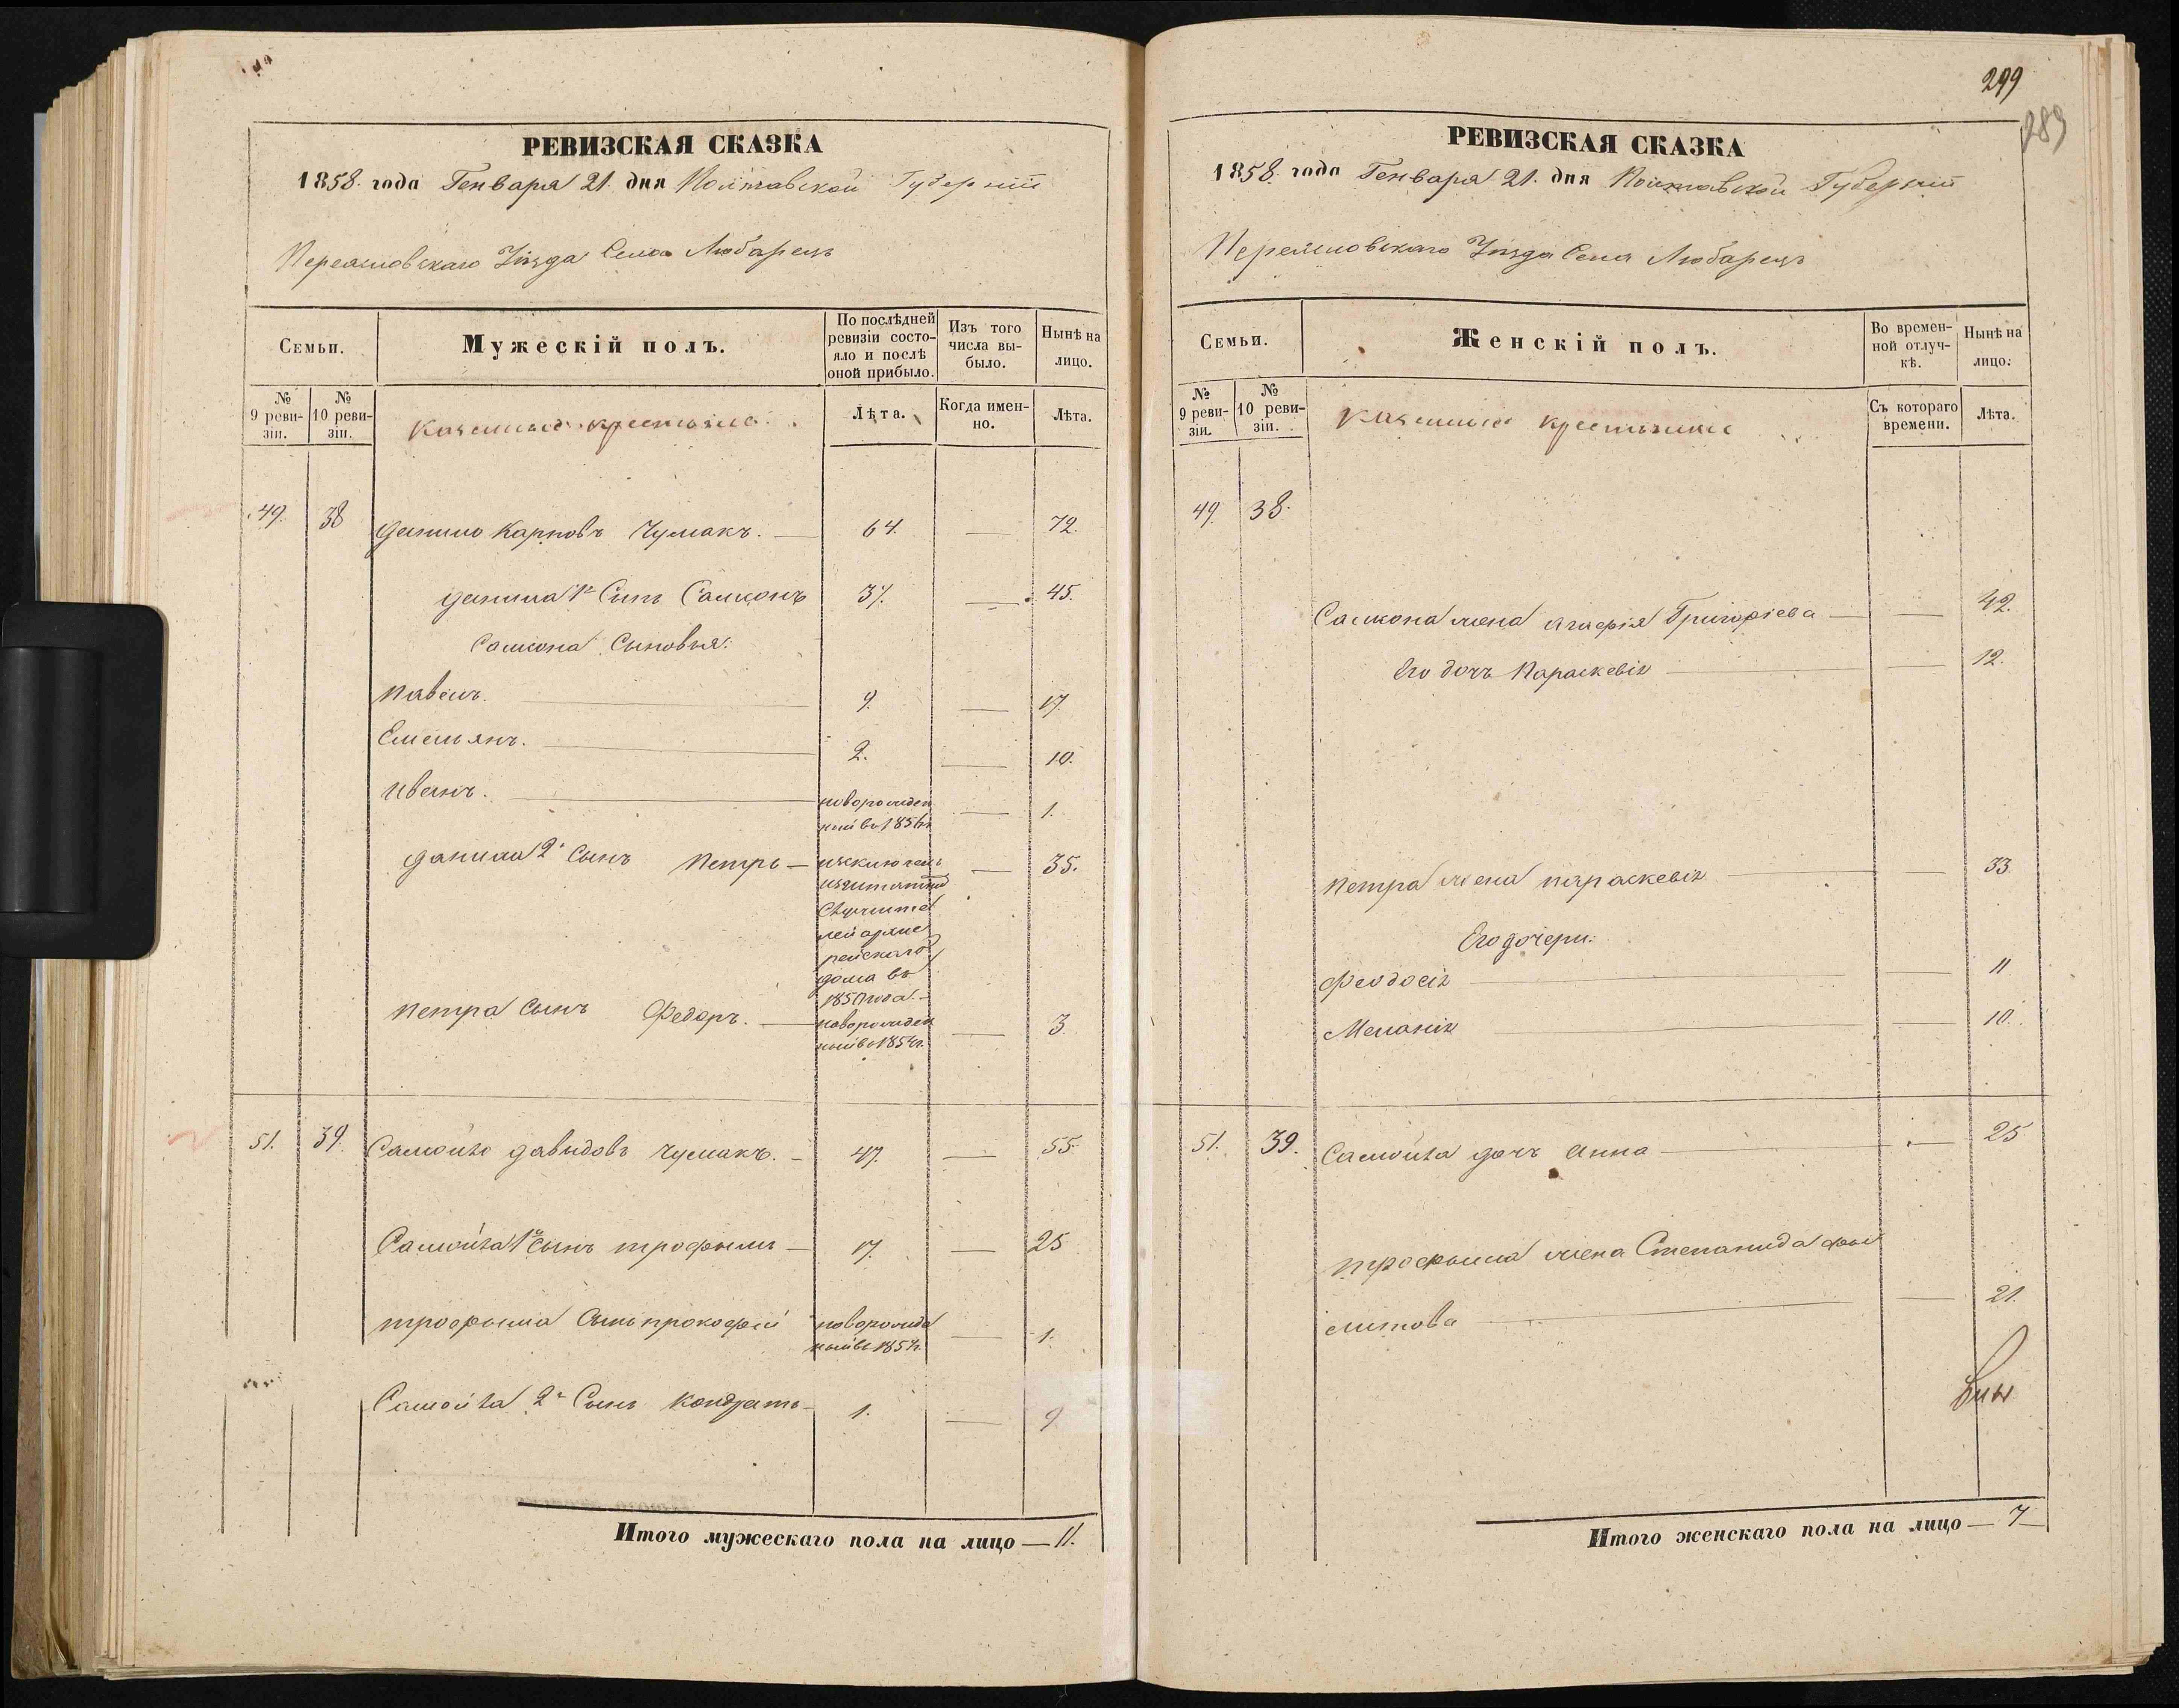 РЕВИЗСКАЯ СКАЗКА
1858. года Генваря 21. дня Полтавской Губерніи
Переясловскаго Уѣзда Села Любарець
Семьи.
Мужескій полъ.
По послѣдней ревизіи состо-
яло и послѣ
оной прибыло.
Изъ того
числа вы-
было.
Нынѣ на
лицо.
№
9 реви-
зіи.
№
10 реви-
зіи.
Казенные крестьяне.
Лѣта.
Когда имен-
но.
Лѣта.
49. 38 Данило Карповъ Чумакъ. — 64. — 72.
Данила 1й Сынъ Самсонъ 37. — 45.
Самсона Сыновья:
Павелъ. — 9. — 17.
Емельянъ. — 2. — 10.
Иванъ. — новорожден
ный во 1856г. — 1.
Данила 2й Сынъ Петръ — исключенъ
изъ
Служите
лей архие
рейскаго
дома въ
1851 года. — 35.
Петра Сынъ Федоръ. — новорожден
ный во 1854г. — 3
51. 39. Самойло Давидовъ Чумакъ. — 47. — 55.
Самойла 1й Сынъ Трофымъ — 17. — 25
Трофыма Сынъ Прокофій новорожде
ный во 1857г. — 1.
Самойла 2й Сынъ Кондратъ — 1. — 9
Итого мужескаго пола на лицо — 11.
299
289
РЕВИЗСКАЯ СКАЗКА
1858. года Генваря 21. дня Полтавской Губерніи
Переясловскаго Уѣзда Села Любарець
Семьи.
Женскій полъ.
Во времен-
ной отлуч-
кѣ.
Нынѣ на
лицо.
№
9 реви-
зіи.
№
10 реви-
зіи.
Казенные крестьянки
Съ котораго
времени.
Лѣта.
49. 38.
Самсона жена Агафія Григоріева — — 42.
Его дочь Параскевія — — 12.
Петра жена Параскевія — — 33
Его дочери:
Феодосія — — 11
Меланія — — 10.
51. 39. Самойла дочь Анна — — 25
Трофыма жена Степанида Фы
липова — — 21.
Итого женскаго пола на лицо — 7